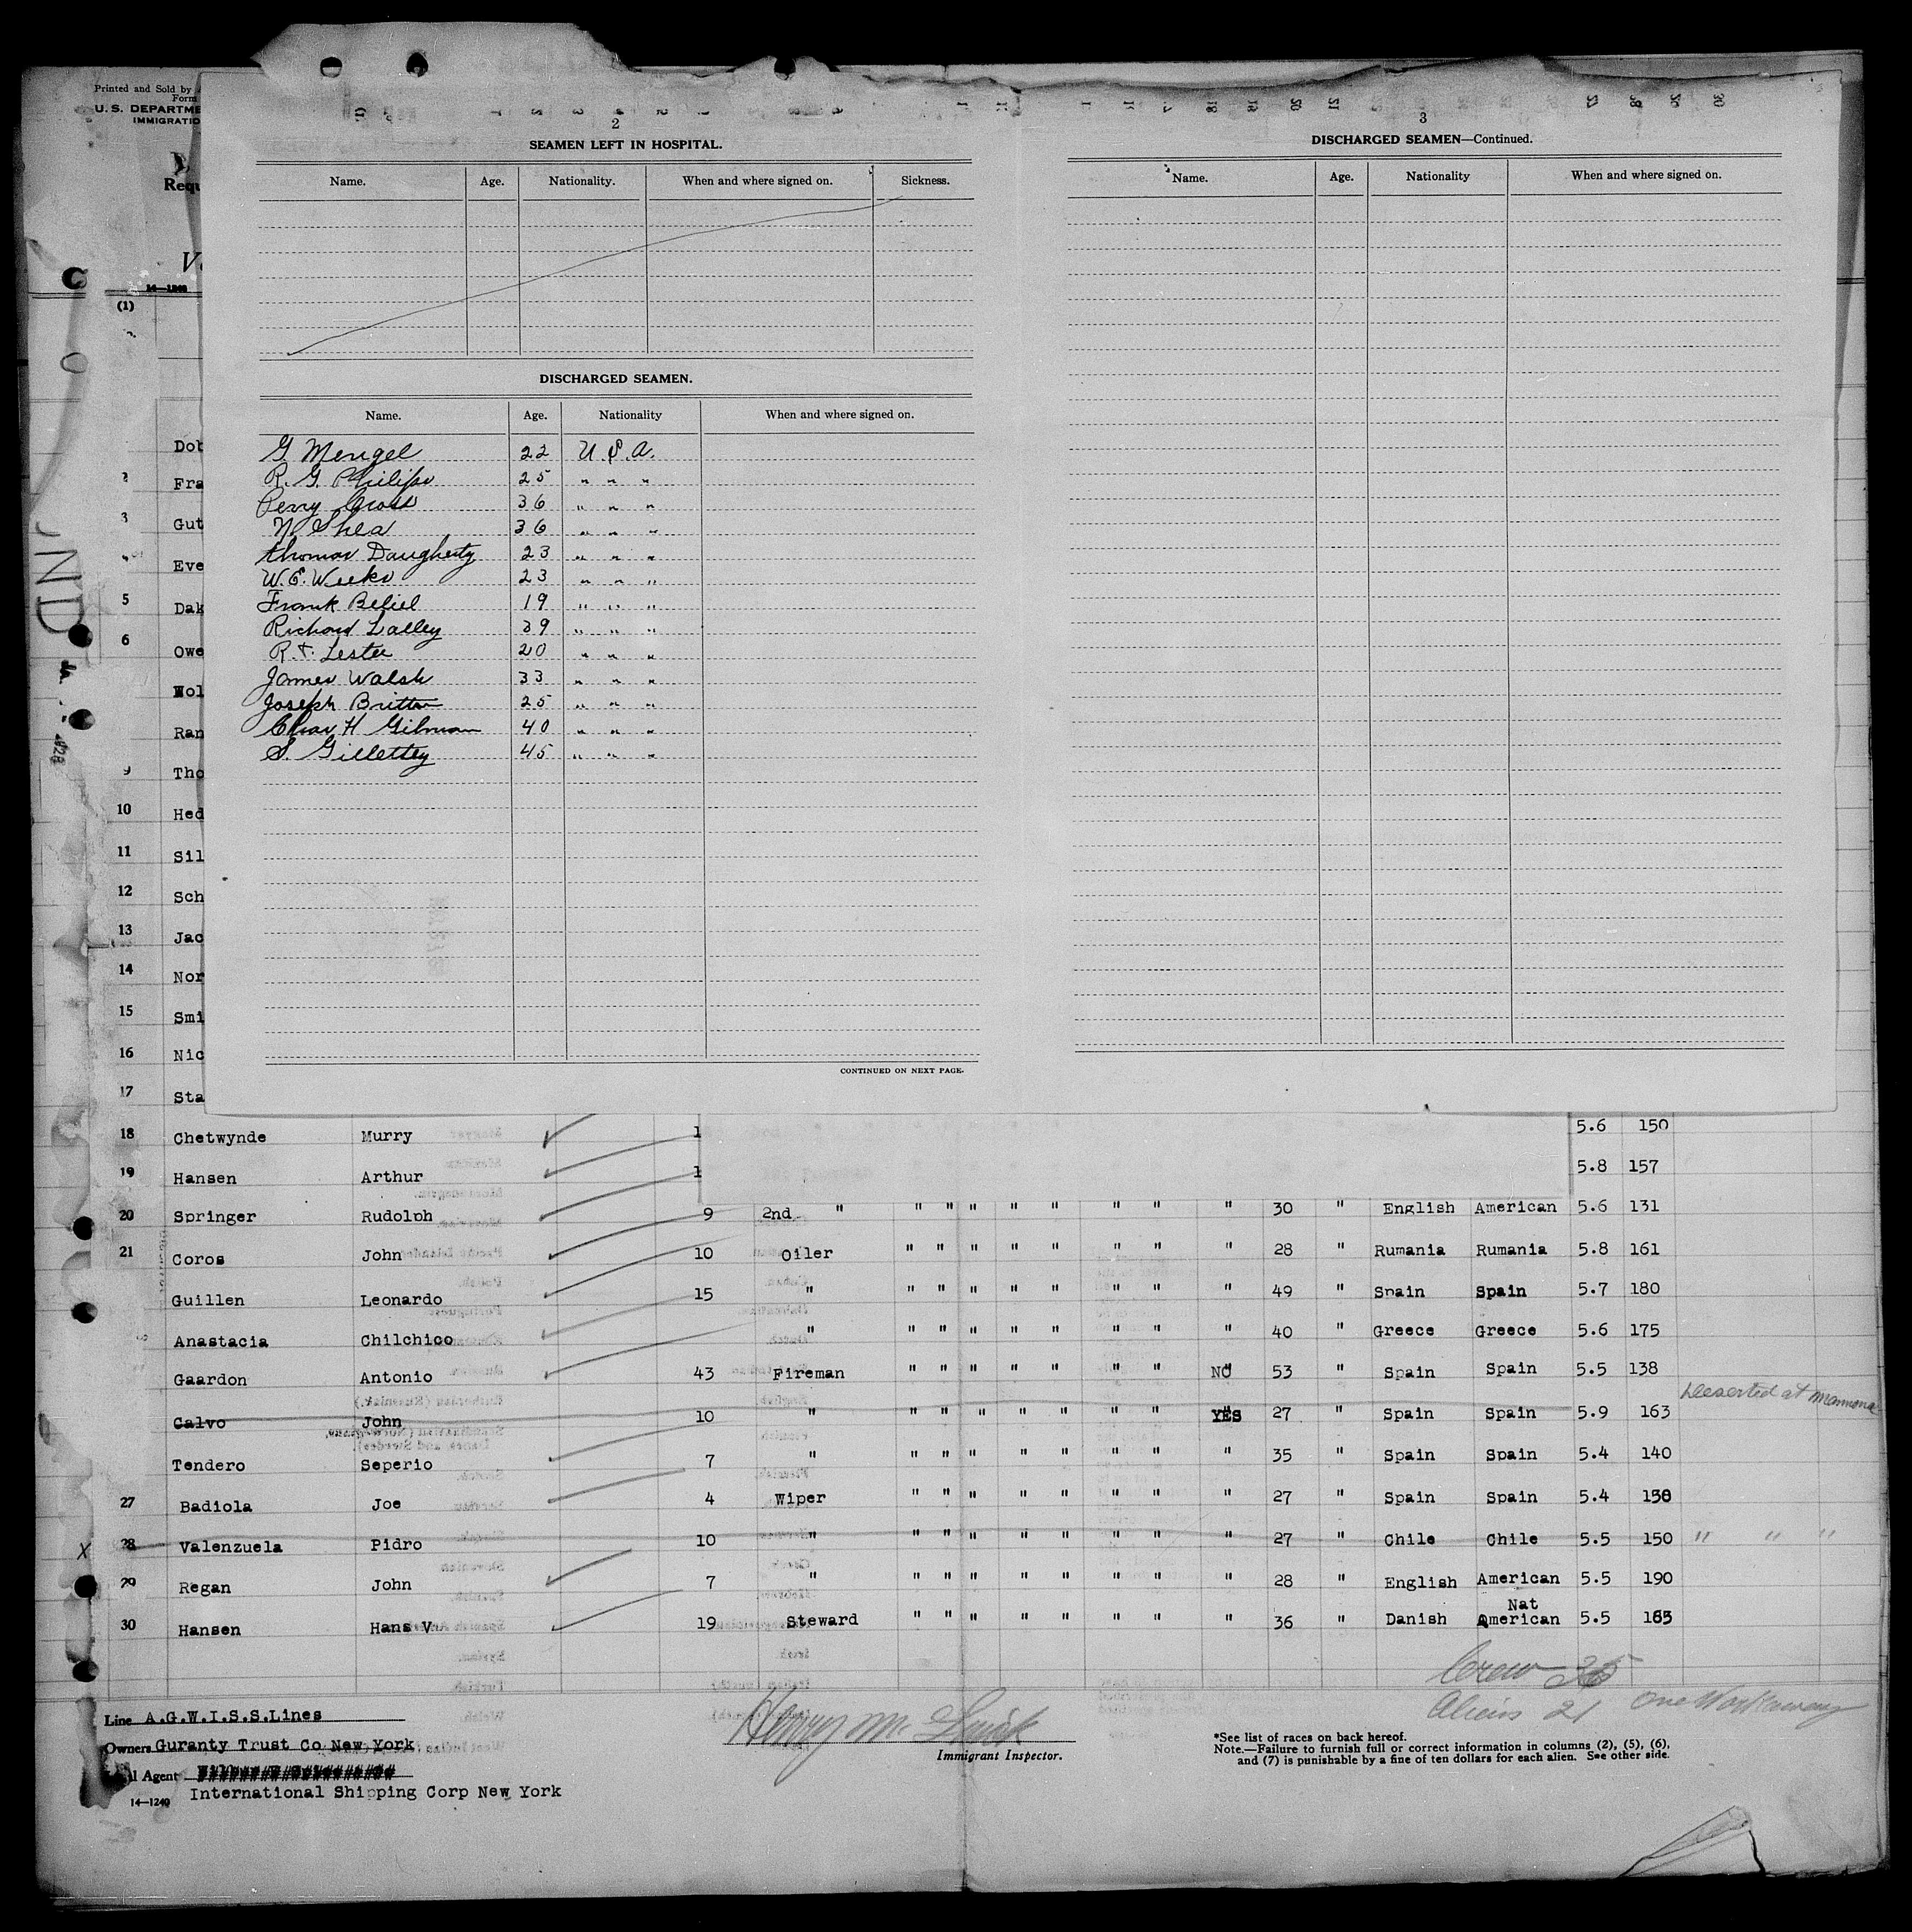 Printed and Sold by
Form
U. S. DEPARTME
IMMIGRATIO
Requ
14—1240
(1)
2
SEAMEN LEFT IN HOSPITAL.
Name. Age. Nationality. When and where signed on. Sickness.
DISCHARGED SEAMEN.
Name. Age. Nationality When and where signed on.
G. Mengel 22 U.S.A.
R. G. Philips 25 " " "
Perry Cross 36 " " "
N. Shea 36 " " "
Thomas Daugherty 23 " " "
W. E. Weeks 23 " " "
Frank Beliel 19 " " "
Richard Lalley 39 " " "
R. t. Lester 20 " " "
James Walsh 33 " " "
Joseph Britton 25 " " "
Chas H Gilman 40 " " "
S. Gillettey 45 " " "
CONTINUED ON NEXT PAGE.
3
DISCHARGED SEAMEN—Continued.
Name. Age. Nationality When and where signed on.
Dob
2 Fra
3 Gut
Eve
5 Dak
6 Owe
Wol
Ran
9 Tho
10 Hed
11 Sil
12 Sch
13 Jac
14 Nor
15 Smi
16 Nic
17 Sta
18 Chetwynde Murry 1 5.6 150
19 Hansen Arthur 1 5.8 157
20 Springer Rudolph 9 2nd " " " " " " " " " 30 " English American 5.6 131
21 Coros John 10 Oiler " " " " " " " " 28 " Rumania Rumania 5.8 161
Guillen Leonardo 15 " " " " " " " " " 49 " Spain Spain 5.7 180
Anastacia Chilchico " " " " " " " " " 40 " Greece Greece 5.6 175
Gaardon Antonio 43 Fireman " " " " " " " NO 53 " Spain Spain 5.5 138
Calvo John 10 " " " " " " " " YES 27 " Spain Spain 5.9 163 Deserted at
Tendero Seperio 7 " " " " " " " " " 35 " Spain Spain 5.4 140
27 Badiola Joe 4 Wiper " " " " " " " " 27 " Spain Spain 5.4 150
X 28 Valenzuela Pidro 10 " " " " " " " " " 27 " Chile Chile 5.5 150 " " "
29 Regan John 7 " " " " " " " " " 28 " English American 5.5 190
30 Hansen Hans V 19 Steward " " " " " " " " 36 " Danish Nat American 5.5 165
Crew 35
Aliens 21 One Workaway
Line A.G.W.I.S.S.Lines
Owners Guranty Trust Co New York
l Agent
International Shipping Corp New York
14—1240
Henry M.
Immigrant Inspector.
*See list of races on back hereof.
Note.—Failure to furnish full or correct information in columns (2), (5), (6),
and (7) is punishable by a fine of ten dollars for each alien. See other side.